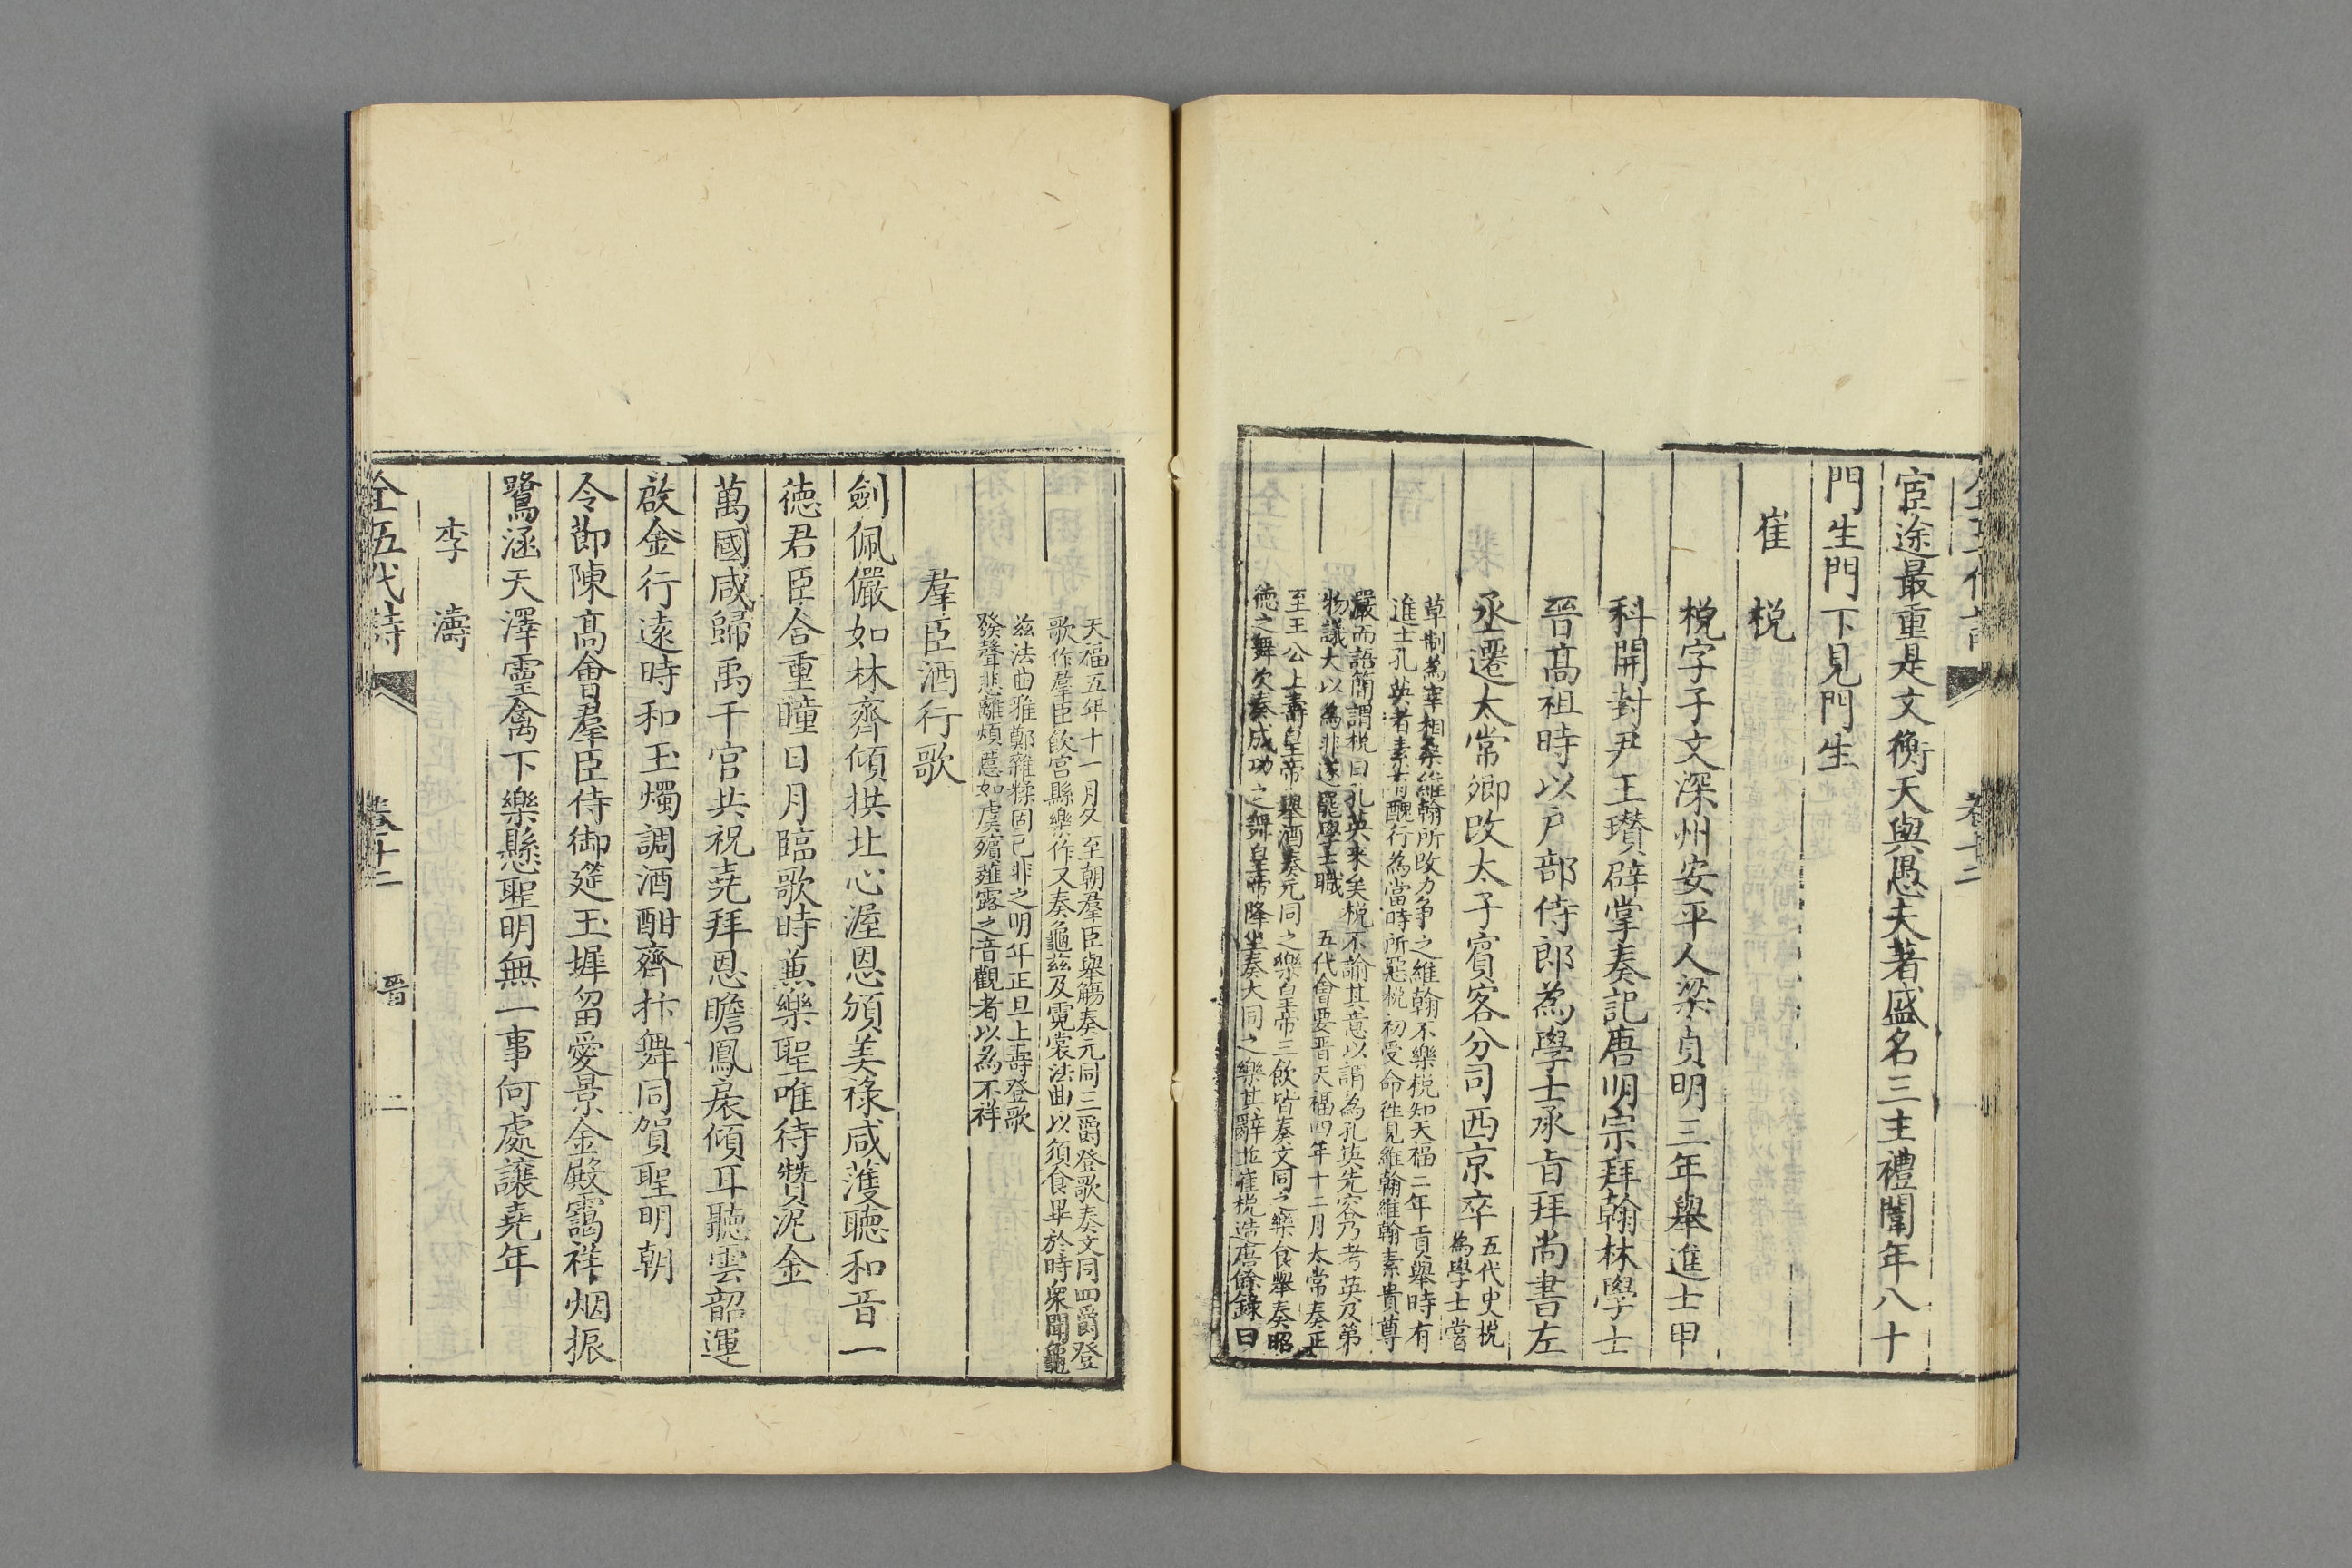 宦途最重是文衡天與愚夫著盛名三主禮闈年八十
門生門下見門生
崔梲
梲字子文深州安平人梁貞明三年舉進士甲
科開封尹王瓚辟掌奏記唐明宗拜翰林學士
晉髙祖時以户部侍郎為學士承旨拜尚書左
丞遷太常卿改太子賓客分司西京卒
五代史梲
為學士嘗
草制為宰相桑維翰所改力争之維翰不樂梲知天福二年貢舉時有
進士孔英者素有醜行為當時所惡梲初受命徃見維翰維翰素貴尊
嚴而語簡謂梲曰孔英来矣梲不諭其意以謂為孔英先容乃考英及第
物議大以為非遂罷學士職 五代會要晋天福四年十二月太常奏正
至王公上壽皇帝舉酒奏元同之樂皇帝三飲皆奏文同之樂食舉奏昭
德之舞次奏成功之舞皇帝降坐奏大同之樂其辭並崔梲造唐餘錄曰
天福五年十一月冬至朝羣臣舉觴奏元同三爵登歌奏文同四爵登
歌作羣臣飲宫縣樂作又奏龜兹及霓裳法曲以須食畢於時衆聞龜
兹法曲雅鄭雜糅固已非之明年正旦上壽登歌
發聲悲離煩慝如虞殯薤露之音觀者以為不祥
羣臣酒行歌
劍佩儼如林齊傾拱北心渥恩頒美祿咸濩聽和音一
德君臣合重瞳日月臨歌時蒹樂聖唯待贊泥金
萬國咸歸禹千官共祝堯拜恩瞻鳳扆傾耳聽雲韶運
啟金行逺時和玉燭調酒酣齊抃舞同賀聖明朝
令節陳髙會羣臣侍御筵玉墀留愛景金殿靄祥烟振
鷺涵天澤靈禽下樂懸聖明無一事何處讓堯年
李濤
全五代詩 卷十二 晋 二